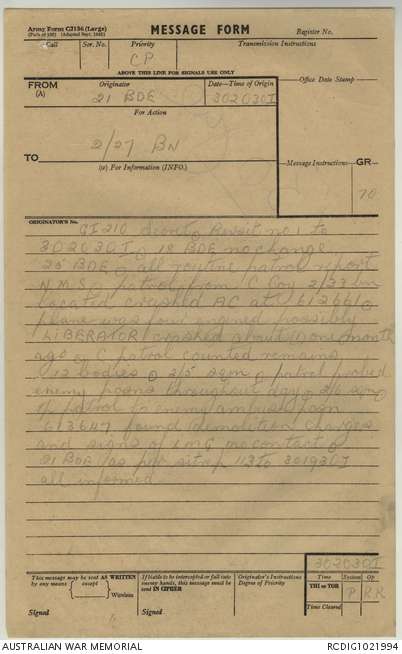 Army Form C2136 (Large)
MESSAGE FORM
Register No.
Call
Ser. No.
Priority
Transmission Instructions
CP
ABOVE THIS LINE FOR SIGNALS USE ONLY
FROM
(A)
Originator
Date—Time of Origin
Office Date Stamp
21 BDE
302030I
For Action
2/27 BN
TO
(W) For Information (INFO.)
Message Instructions
GR
70
ORIGINATOR'S No.
GI 210 secret to
302030I 18 BDE no change
25 BDE all routine patrol report
patrol from C Coy 2/33 bn
located crashed AC at 612661
plane was four engined possibly
LIBERATOR crashed about one month
ago C patrol counted remains
12 bodies 2/5 sqn patrol probed
enemy posns throughout day 2/6 sqn
patrol to enemy ambush posn
613647 found demolition charges
and signs of LMG no contact
21 BDE as per sitrep 113 to 301930I
all informed
302030I
This message may be sent AS WRITTEN
by any means
except
Wireless
If liable to be intercepted or fall into
enemy hands, this message must be
sent IN CIPHER
Originator's Instructions
Degree of Priority
Time
System
Op
THI or TOR
P
RR
Time Cleared
Signed
Signed
AUSTRALIAN WAR MEMORIAL
RCDIG1021994